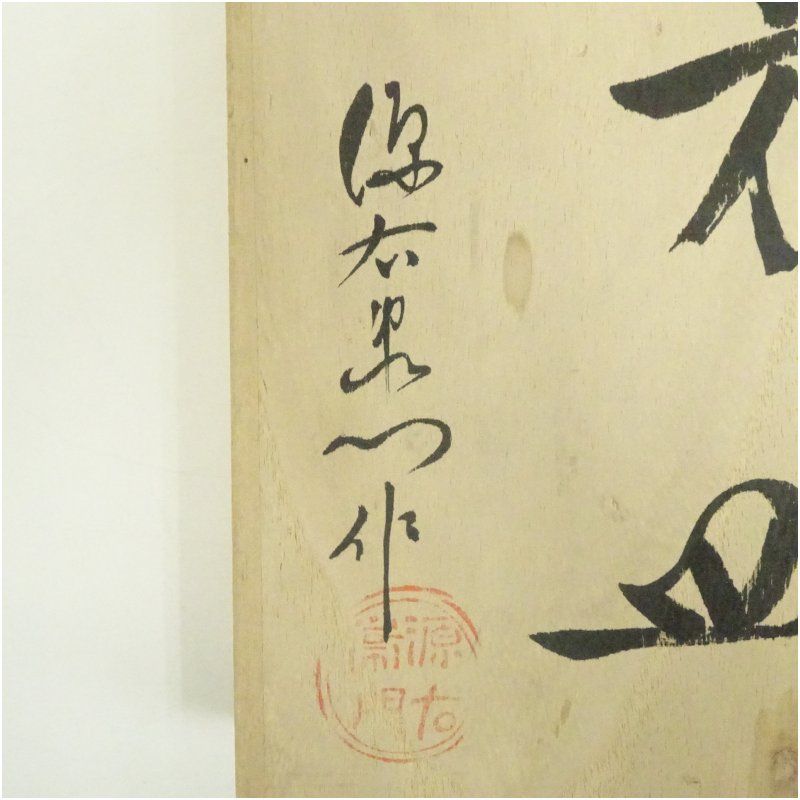 皿
源右衛門作
源右
衛門